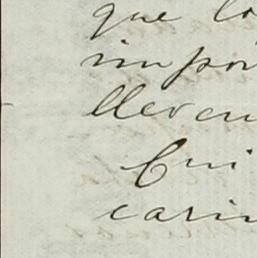 que lo
impor
lleven
Cui
carin